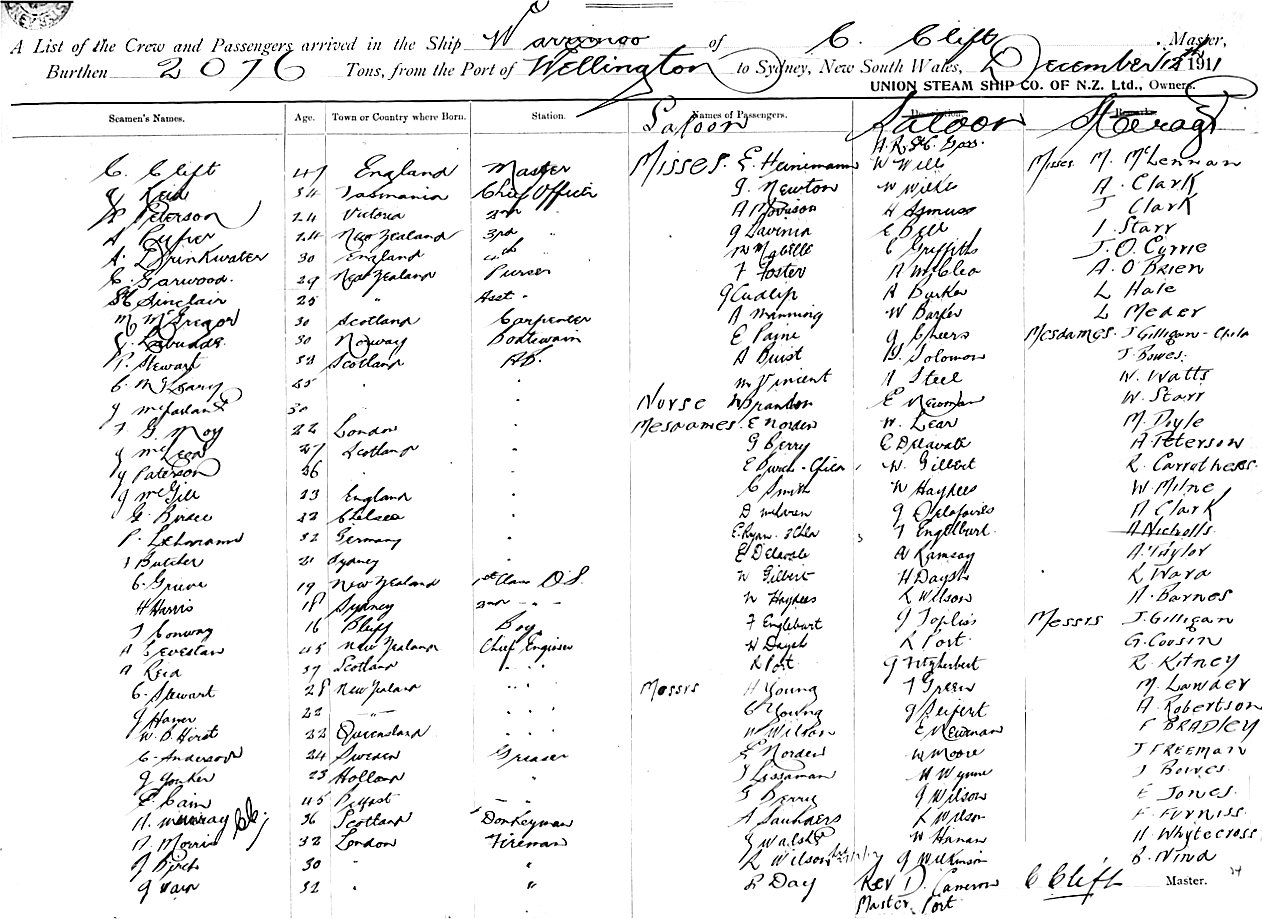 A List of the Crew and Passengers arrived in the Ship Warrimoo of C. Clift, Master,
Burthen 2076 Tons, from the Port of Wellington to Sydney, New South Wales, December 12th 1911
UNION STEAM SHIP CO. OF N.Z. Ltd., Owners.
Seamen's Names. Age. Town or Country where Born. Station. Names of Passengers. Saloon Saloon Steerage
C. Clift 47 England Master Misses. E. Heinemann W Will Misses M. McLennan
J Reid 34 Tasmania Chief Officer J. Newton W Wilks A. Clark
Peterson 24 Victoria 2nd " A Morrison H Asmuss J Clark
24 New Zealand 3rd " G Lavinia E Bell I. Starr
A. Drinkwater 30 England 4th " Mabelle C Griffiths J. O. Currie
C. Garwood. 29 New Zealand Purser F Foster A. O'Brien
Sinclair 25 " Asst " G Cudlip A Barker L Hale
M McGregor 30 Scotland Carpenter A Manning W Barker L Meder
30 Norway Boatswain E Paine G Cheers Mesdames. J Gilligan - Child
R. Stewart 53 Scotland AB. A Buist Solomon J. Bowes.
C. McGeary 25 " " M Vincent A Steel W. Watts
J McFarland 30 " Nurse W Brandon E Newman W. Starr
G. Moy 22 London " Mesdames. E Norden W. Lear M. Doyle
J McLeod 27 Scotland " G Berry E Delavale A. Peterson
J Paterson 36 " " E Burch - Child W. Gilbert R. Carrothers.
J McGill 23 England " C Smith W Haydees W. Milne
G. Birdee 32 Chelsea " D G Delafaires A Clark
P. Lehmann 32 Germany " E. Ryan. 3 Chln 3 F Engelburt A Nicholls
J Butcher 21 Sydney " E Delavale A Ramsay A. Taylor
C. Grieve 19 New Zealand 1st Class O.S. W Gilbert H Daysh R Ward
H Harris 18 Sydney 2nd " " W Haydees R Wilson A. Barnes
J Conway 16 Bluff Boy F Englebert G Joplin Messrs J. Gilligan
A Sevestan 45 New Zealand Chief Engineer W Daysh R Port G. Cousin
A Reid 37 Scotland " " R Port G Fitzherbert R. Kitney
C. Stewart 28 New Zealand " " Messrs H Young F Green M. Lawder
22 " " " C Young G Seifert A Robertson
W. D. Hirst 32 Queensland " " W Wilson E Newman F BRADLEY
C. Anderson 24 Sweden Greaser E Norden W Moore J FREEMAN
G Yonker 25 Holland " J Lissaman H Wynne J Bowes.
E Cain 45 Belfast " G Berry G Wilson E Jones.
A. Murray 36 Scotland Donkeyman A Saunders R Wilson F. Furniss
A Morris 32 London Fireman G Walshe W Hannan H. Whytecross
J Birch 30 " " R Wilson G Wilkinson B. Nind
32 " " R Day Rev D. Cameron C Clift Master.
Master Port